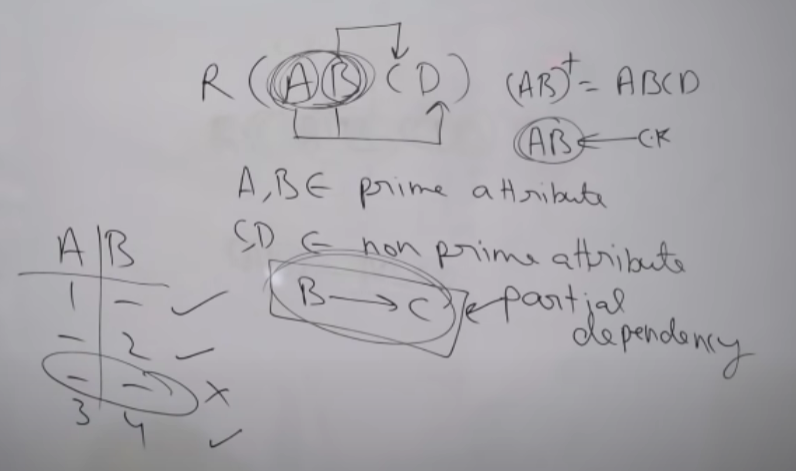 R ( A B C D ) (AB)⁺ = ABCD
AB ← C.K
A, B ∈ prime attribute
C, D ∈ non prime attribute
B → C ← partial
dependency
A | B
1 | – ✓
– | 2 ✓
– | – ×
3 | 4 ✓